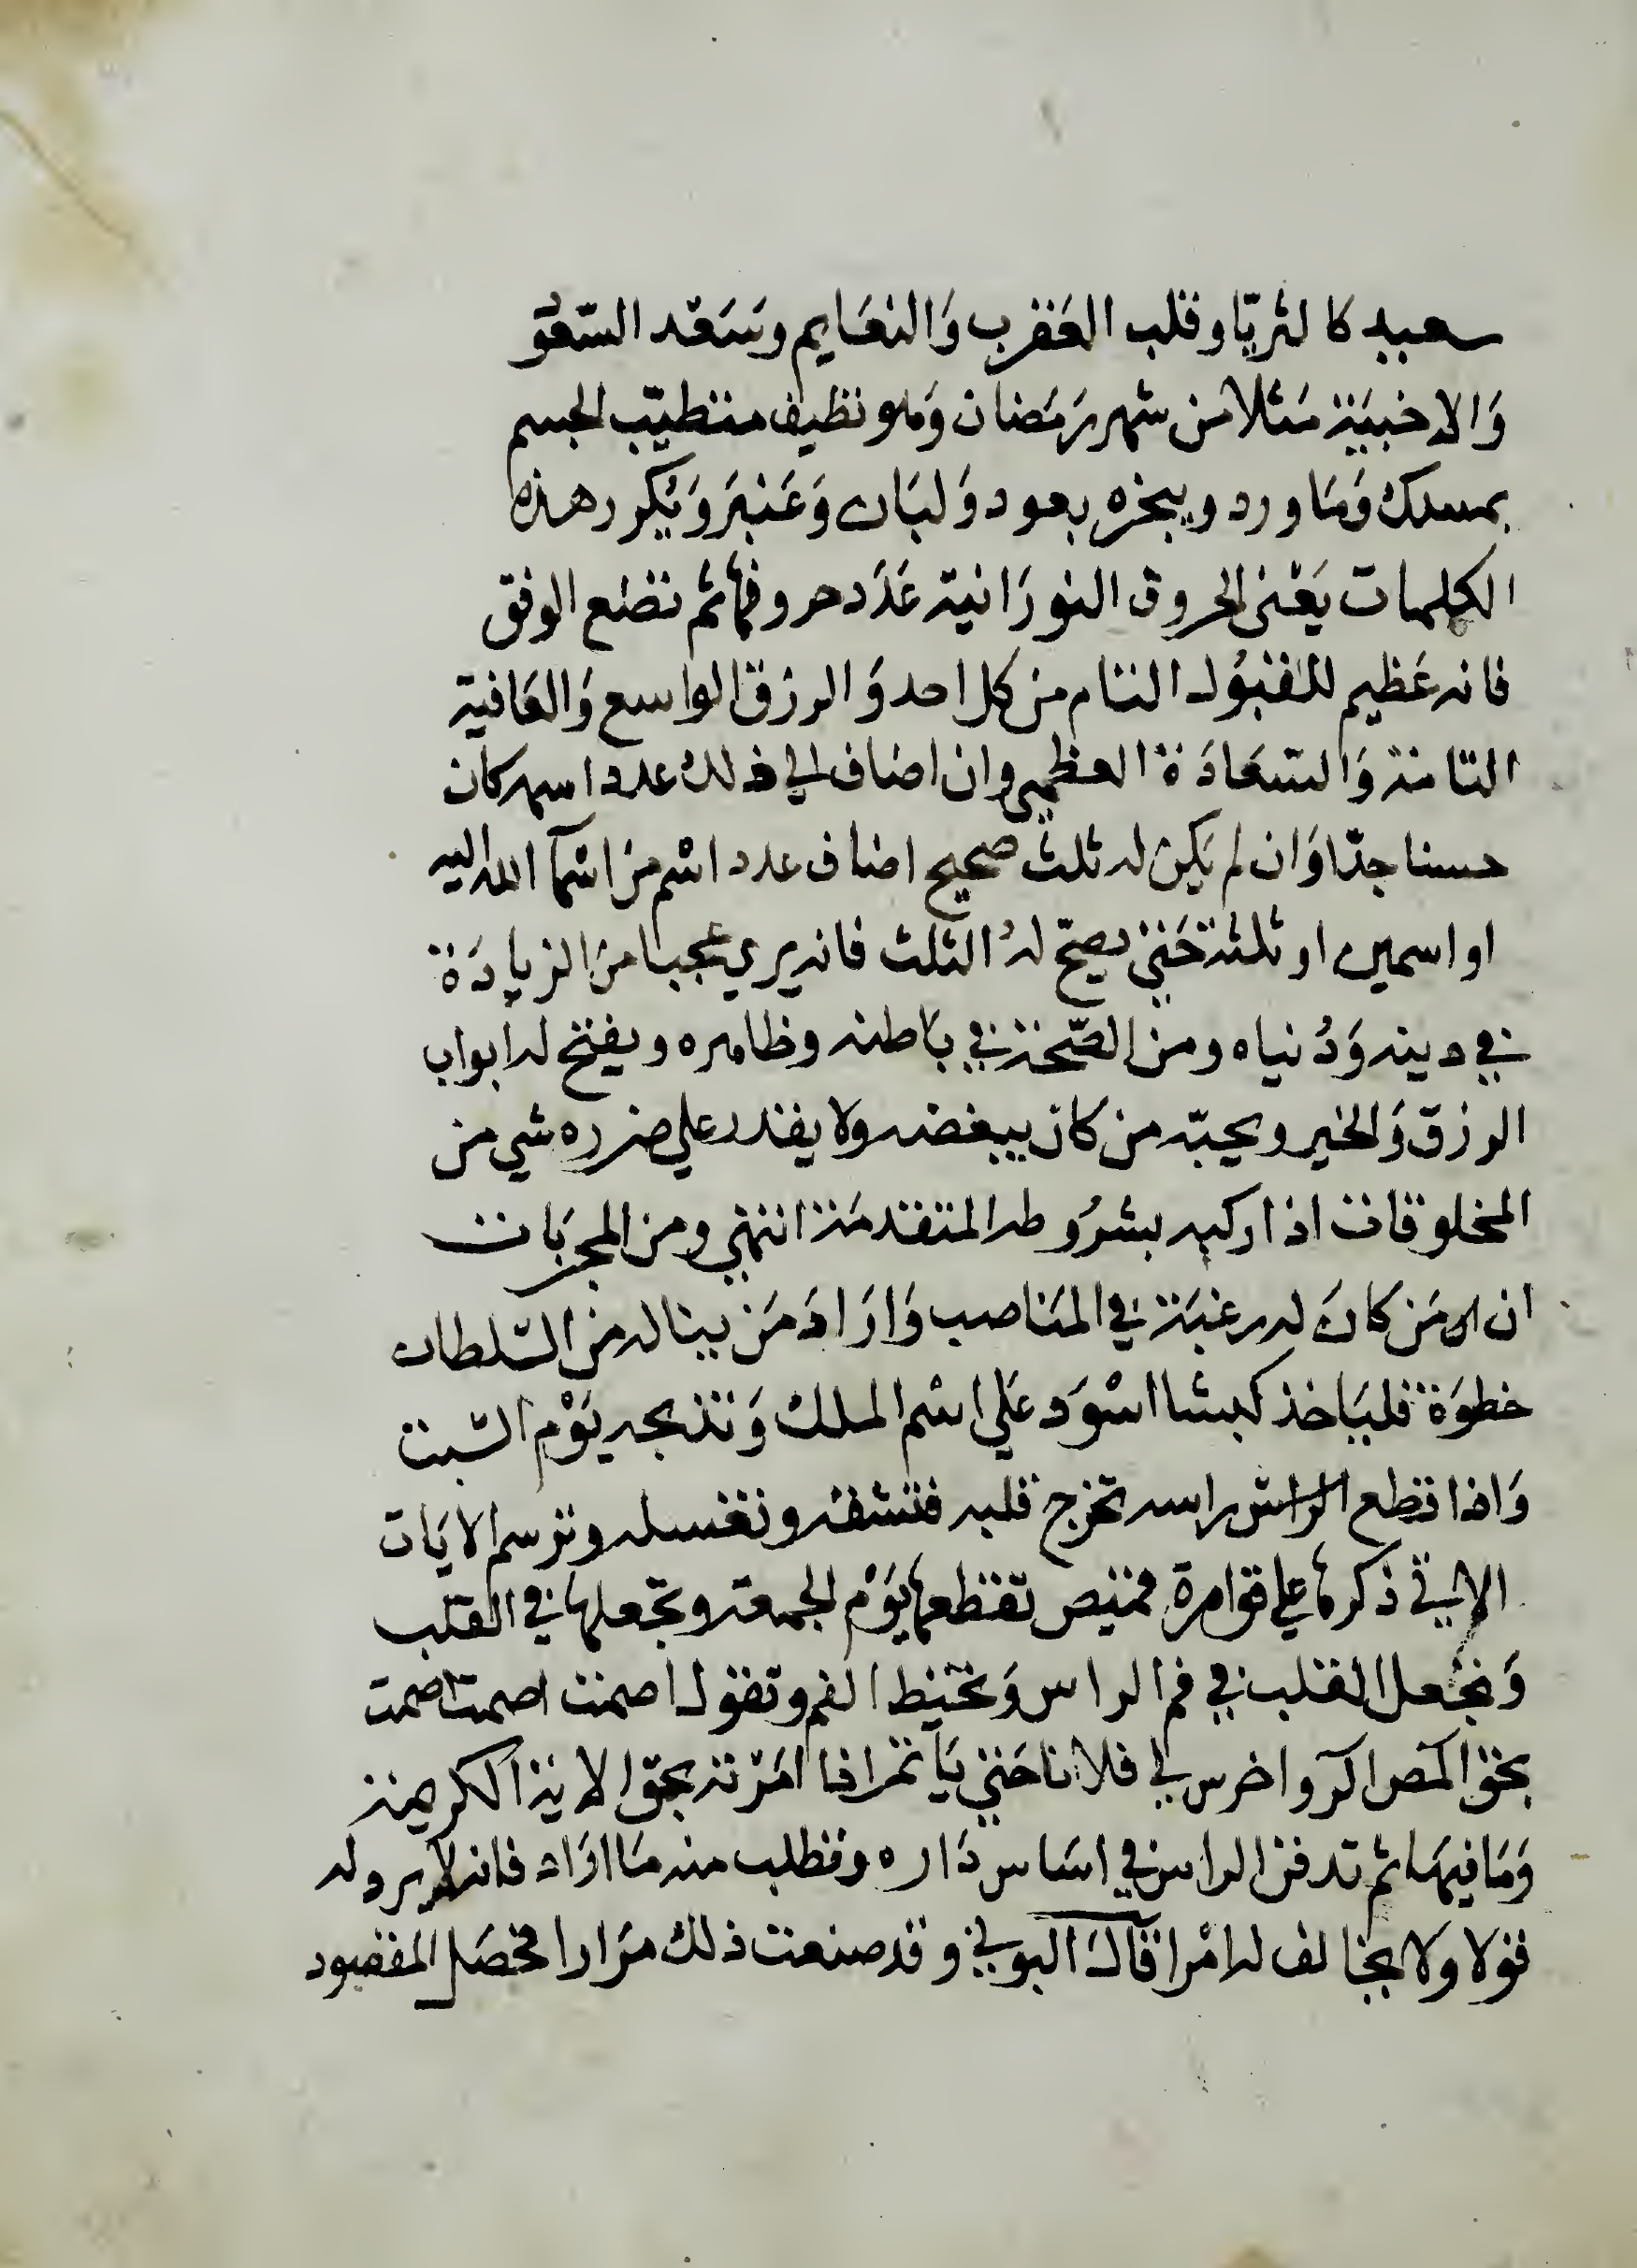 سعيد كالثريّا وقلب العَقرب وَالنعَايم وسَعْد السّعو
وَالاخبيَة مَثلا من شهر رَمَضان وَهو نظيف متطيّب الجسم
بمسك وَمَا ورد ويبخره بعود وَلبَان وَعَنبَر وَيكرر هذه
الكلمات يَعْني الحروف النورَانية عَدَد حروفها ثم تضَع الوفق
فانه عَظيم للقبُول التام من كل احد وَالرزق الواسع وَالعَافية
التامة وَالسّعَادَة العظمى وان اضاف الي ذلك عدد اسمه كان
حسنا جدّا وَان لم يَكن له ثلث صحيح اضاف عدد اسْم من اسْمآ الله اليه
او اسمين او ثلثة حَتي يصحّ لهُ الثلث فانه يري عجبا من الزيادَة
في دينه وَدُنياه ومن الصّحة في بَاطنه وظاهره ويفتح له ابواب
الرزق وَالخير ويحبّه من كان يبغضه ولا يقدر علي ضرره شي من
المخلوقات اذا ركبه بشرُوطه المتقدمَة انتهي ومن المجرّبات
ان مَن كانَ له رغبَة في المَناصب وَارَادَ مَن يناله من السّلطان
خطوَة فليَاخذ كبشا اسْوَد عَلي اسْم الملك وَتذبحه يَوْم السّبت
وَاذا تقطع الراس راسه تخرج قلبه فتنشفه وتغسله وترسم الايَات
الاتي ذكرها علي قوامرة قميص تقطعها يَوْم الجمعة وتجعلها في القلب
وَتجعل القلب في فم الراس وَتخيّط الفم وتقول اصمت اصمت اصمت
بحق المص الر واخرس لي فلانا حَتي يَاتمر اذا امَرْته بحق الاية الكريمة
وَمَا فيهَا ثم تدفن الراس في اسَاس دَاره وتطلب منه مَا ارَاد فانه لا يرد له
قولا ولا يخالف له امْرا قالَ البوني وقد صنعت ذلك مرَارا فحصَل المقصود